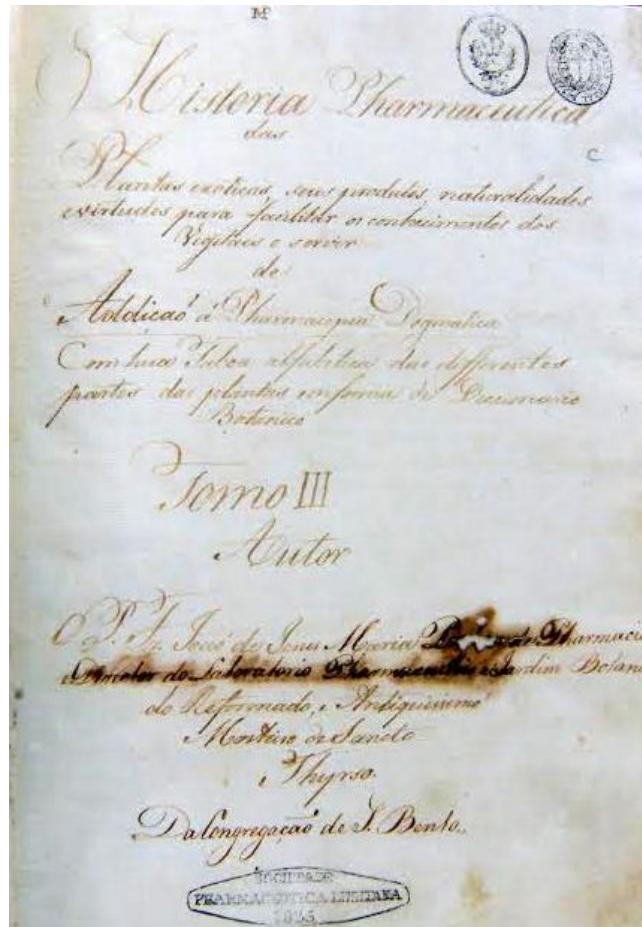 Historia Pharmaceutica
das
Plantas exoticas, seus produtos, naturalidades,
e virtudes para facilitar os conhecimentos dos
Vegitaes e servir
de
Addicaõ á Pharmacopea Dogmatica
Com hua Taboa alfabetica das differentes
partes das plantas conforme o Diccionario
Botanico
Tomo III
Autor
O P. Fr. José de Jesus Maria Pharmacia
e Director do Laboratorio Pharmaceutico e Jardim Botani
do Reformado, e Antiquissimo
Mosteiro de Sancto
Thyrso.
Da Congregação de S. Bento.
SOCIEDADE
PHARMACEUTICA LUSITANA
1835